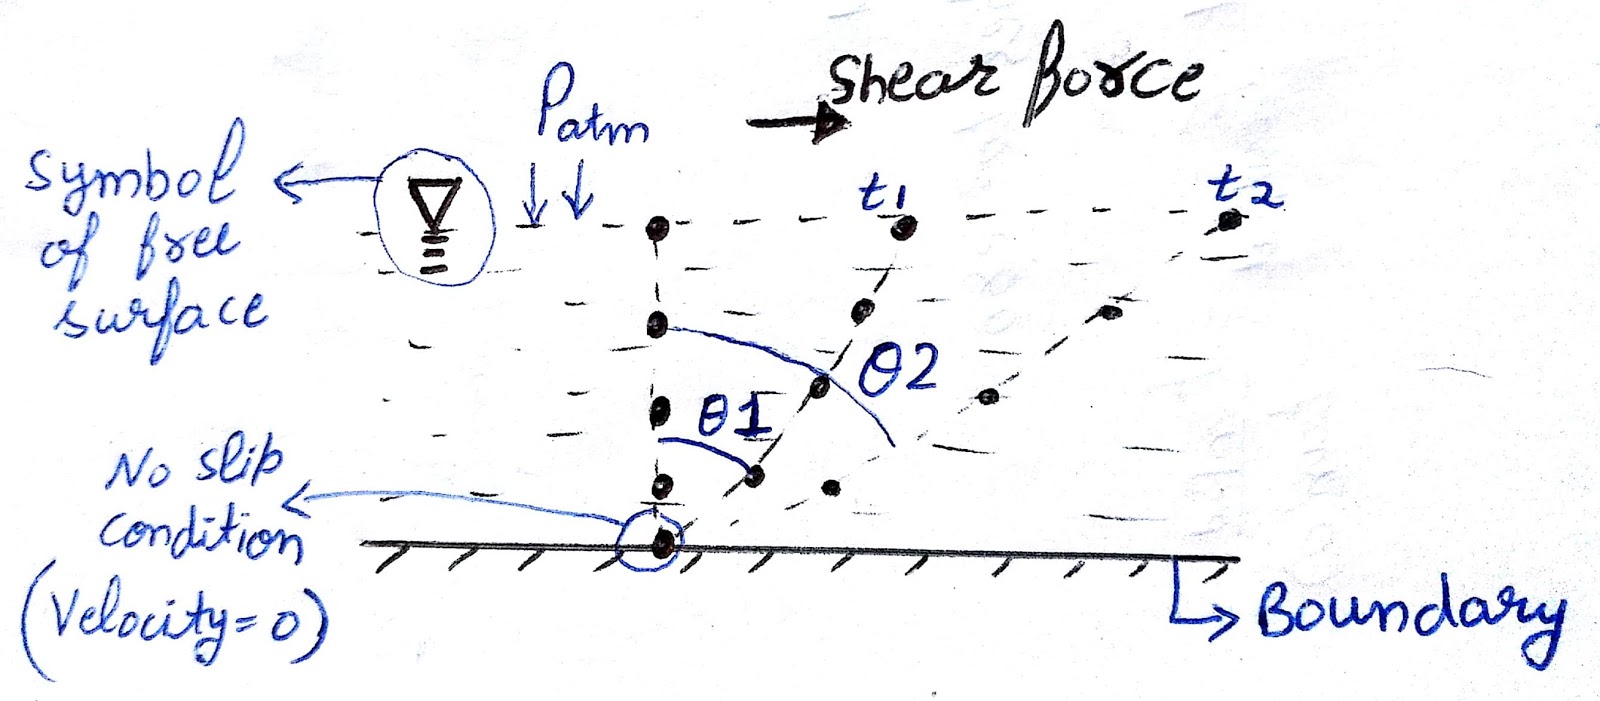 Shear force
Patm
Symbol
of free
surface
t1
t2
θ1
θ2
No slip
condition
(Velocity=0)
Boundary